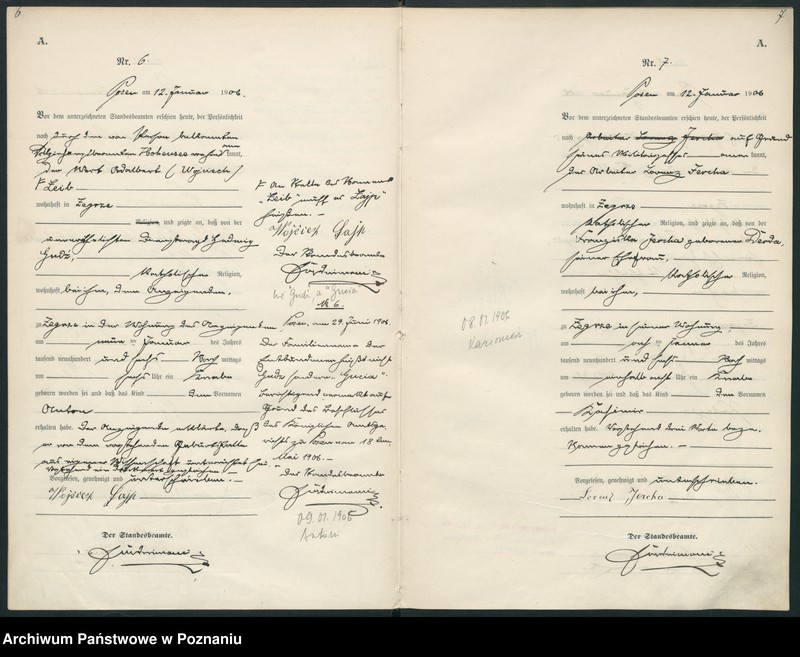 6
A.
Nr. 6.
Posen am 12. Januar 1906.
Vor dem unterzeichneten Standesbeamten erschien heute, der Persönlichkeit
nach durch den von Person bekannten
kannt,
der Wirt Adalbert (Wojciech)
F Leib
wohnhaft in Zegrze
Religion, und zeigte an, daß von der
unverehelichten Dienstmagd Hedwig
Gudz,
katholischer Religion,
wohnhaft bei ihm, dem Anzeigenden,
zu Zegrze in der Wohnung des Anzeigenden
am neun ten Januar des Jahres
tausend neunhundert und sechs Vor mittags
um sechs Uhr ein Knabe
geboren worden sei und daß das Kind den Vornamen
Anton
erhalten habe. Der Anzeigende erklärte, daß
er von der vorstehenden Geburt
aus eigener Wissenschaft unterrichtet sei.
Vorgelesen, genehmigt und unterschrieben.
Wojciech Lajp
Der Standesbeamte.
F An Stelle des Namens
„Leib" muß es „Lajp"
heißen. –
Wojciech Lajp
Der Standesbeamte
Nr. 6.
Posen, am 29. Juni 1906.
Der Familienname der
Entbundenen heißt nicht
Gudz sondern „Gucia".
Berichtigend vermerkt auf
Grund des Beschlusses
des Königlichen Amtsge-
richts zu Posen vom 18 ten
Mai 1906. –
Der Standesbeamte
09.01.1906
Antoni
7
A.
Nr. 7.
Posen am 12. Januar 1906
Vor dem unterzeichneten Standesbeamten erschien heute, der Persönlichkeit
nach Arbeiter Lorenz Jercha auf Grund
seines Militärpasses kannt,
der Arbeiter Lorenz Jercha
wohnhaft in Zegrze
katholischer Religion, und zeigte an, daß von der
Franziska Jercha geborenen
seiner Ehefrau,
katholischer Religion,
wohnhaft bei ihm,
zu Zegrze in seiner Wohnung,
am acht ten Januar des Jahres
tausend neunhundert und sechs Vor mittags
um einhalb acht Uhr ein Knabe
geboren worden sei und daß das Kind den Vornamen
Kasimir
erhalten habe. Vorstehend drei Worte bezw.
Namen gestrichen. –
Vorgelesen, genehmigt und unterschrieben.
Lorenz Jercha
Der Standesbeamte.
08.01.1906
Kazimierz
Archiwum Państwowe w Poznaniu